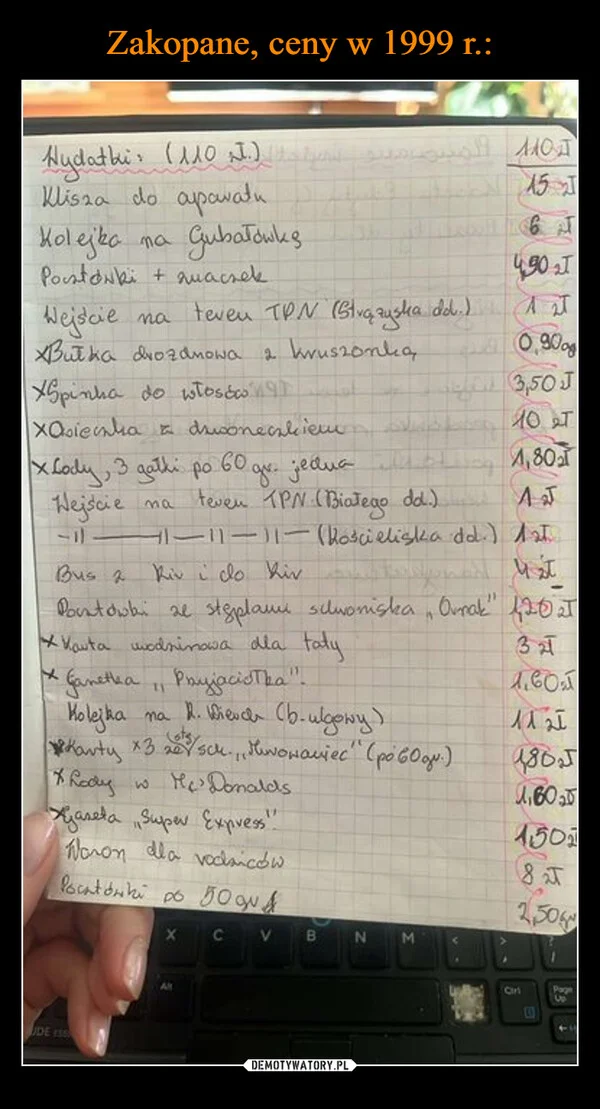 Zakopane, ceny w 1999 r.:
Wydatki: (110 zł.) 110 zł
Klisza do aparatu 15 zł
Kolejka na Gubałówkę 6 zł
Pocztówki + znaczek 4,90 zł
Wejście na teren TPN (Strążyska dol.) 1 zł
x Bułka drożdżowa z kruszonką 0,90 gr
x Spinka do włosów 3,50 zł
x Owieczka z dzwoneczkiem 10 zł
x Lody, 3 gałki po 60 gr. jedna 1,80 zł
Wejście na teren TPN (Białego dol.) 1 zł
-||- -||-||-||- (Kościeliska dol.) 1 zł
Bus z Kir i do Kir 4 zł
Pocztówki ze stęplami schroniska „Ornak" 1,20 zł
x Karta urodzinowa dla taty 3 zł
x Gazetka „Przyjaciółka". 1,60 zł
Kolejka na K. Wierch (b. ulgowy) 11 zł
x Karty x3 ze sch. „Murowaniec" (po 60 gr.) 1,80 zł
x Lody w Mc'Donalds 1,60 zł
x gazeta „Super Express". 1,50 zł
dla rodziców 8 zł
Pocztówki po 50 gr 2,50 gr
X C V B N M < > ?
Alt Ctrl Page Up
DEMOTYWATORY.PL